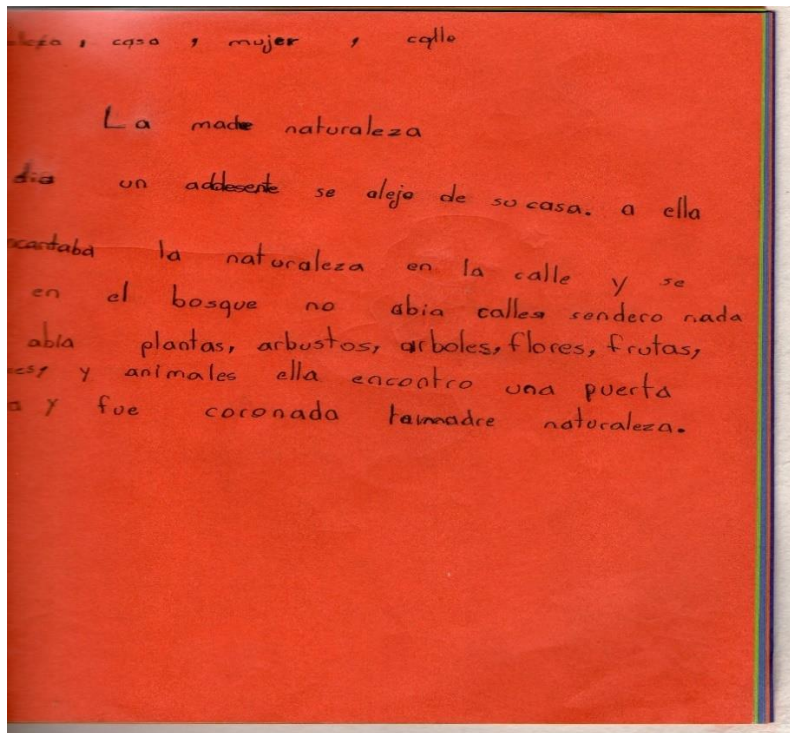 , casa , mujer , calle
La made naturaleza
dia un addesente se alejo de su casa. a ella
cantaba la naturaleza en la calle y se
en el bosque no abia calles sendero nada
abia plantas, arbustos, arboles, flores, frutas,
y animales ella encontro una puerta
a y fue coronada lamadre naturaleza.